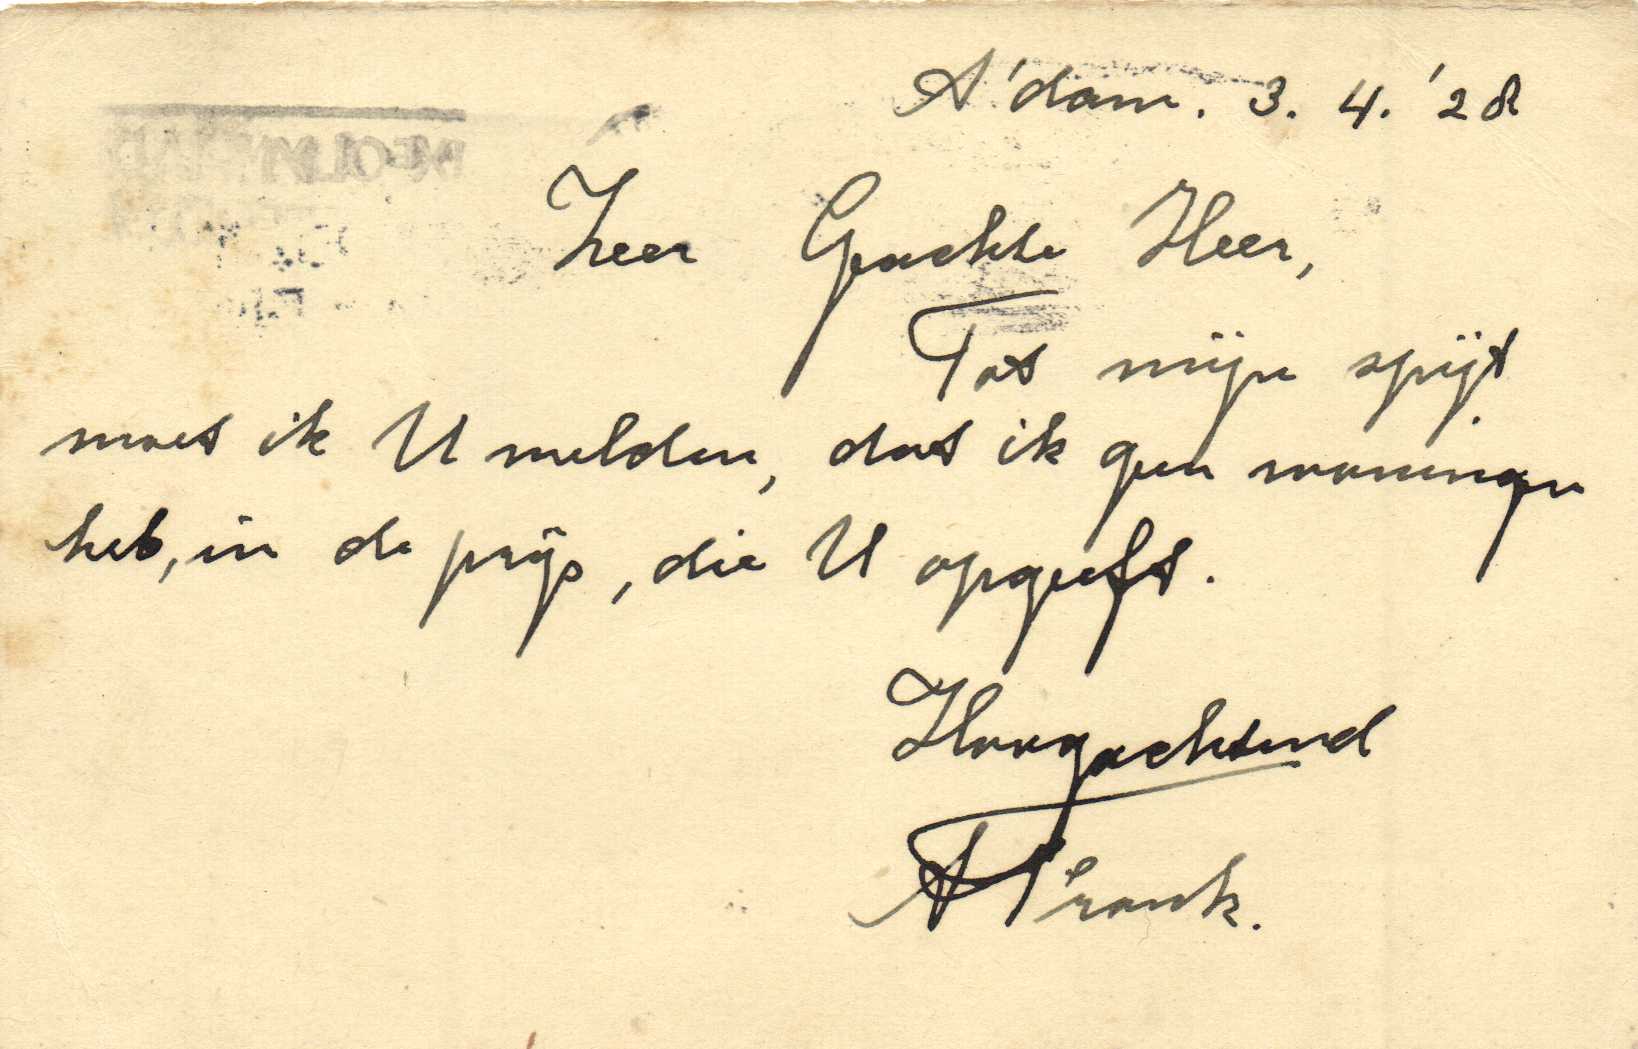 A'dam. 3. 4. '28
Zeer Geachte Heer,
Tot mijn spijt
moet ik U melden, dat ik geen woningen
heb, in de prijs, die U opgeeft.
Hoogachtend
A Frank.